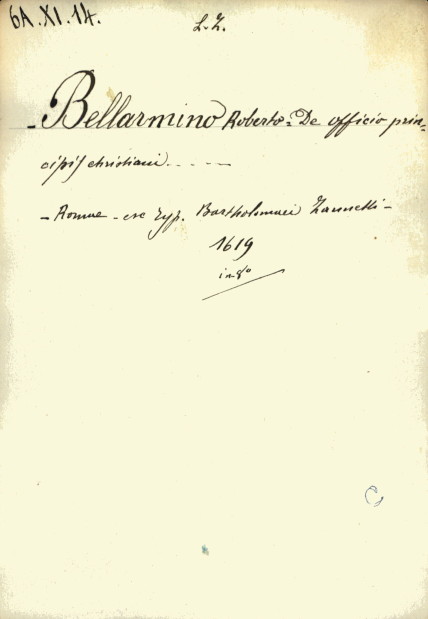 6A.XI.14.
L.Z.
- Bellarmino Roberto = De officio prin=
cipis christiani - - - -
- Romae - ex typ. Bartholomaei Zannetti -
1619
in 8º